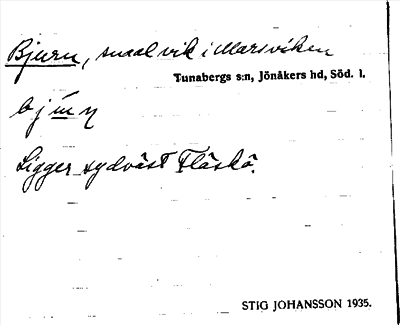 Bjurn, smal vik i Marsviken
Tunabergs s:n, Jönåkers hd, Söd. l.
Ligger sydväst Fläskö.
STIG JOHANSSON 1935.